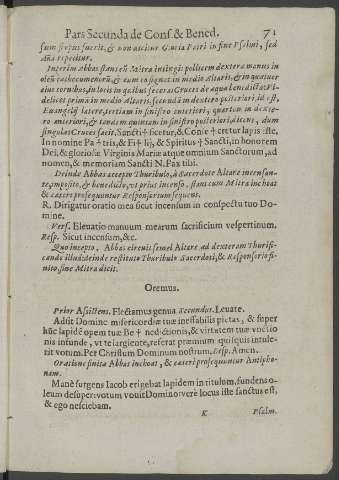 Pars Secunda de Conf & Bened. 71
sum prius fuerit, & non dicitur Gloria Patri in fine Psalmi, sed
Aña repetitur.
Interim Abbas stans cũ Mitra intingit pollicem dexteræ manus in
oleũ cathecumenorũ, & cum eo signet in medio Altaris, & in quatuor
eius cornibus, in locis in quibus fecerat Cruces de aqua benedicta: Vi-
delicet primã in medio Altaris. secundã in dextero posteriori id est,
Euangelij latere, tertiam in sinistro anteriori, quartam in dexte-
ro anteriori, & tandem quintam in sinistro posteriori, dicens, dum
singulas Cruces facit, Sancti † ficetur, & Conse † cretur lapis iste,
In nomine Pa † tris, & Fi † lij, & Spiritus † Sancti, in honorem
Dei, & gloriosæ Virginis Mariæ atque omnium Sanctorum, ad
nomen, & memoriam Sancti N. Pax tibi.
Deinde Abbas accepto Thuribulo, à Sacerdote Altare incensan-
te, imposito, & benedicto, vt prius incenso, stans cum Mitra inchoat
& cæteri prosequuntur Responsorium sequens.
R. Dirigatur oratio mea sicut incensum in conspectu tuo Do-
mine.
Vers. Eleuatio manuum mearum sacrificium vespertinum.
Resp. Sicut incensum, &c.
Quo incepto, Abbas circuit semel Altare, ad dexteram Thurifi-
cando illud: deinde restituto Thuribulo Sacerdoti, & Responsorio fi-
nito, sine Mitra dicit.
Oremus.
Prior Assistens. Flectamus genua Secundus. Leuate.
Adsit Domine misericordiæ tuæ ineffabilis pietas, & super
hũc lapidẽ opem tuæ Be † nedictionis, & virtutem tuæ vnctio
nis infunde, vt te largiente, referat præmium quisquis intule-
rit votum. Per Christum Dominum nostrum. Resp. Amen.
Oratione finita Abbas inchoat, & cæteri prosequuntur Antipho-
nam.
Manè surgens Iacob erigebat lapidem in titulum, fundens o-
leum desuper: votum vouit Domino: verè locus iste sanctus est,
& ego nesciebam.
K Psalm.